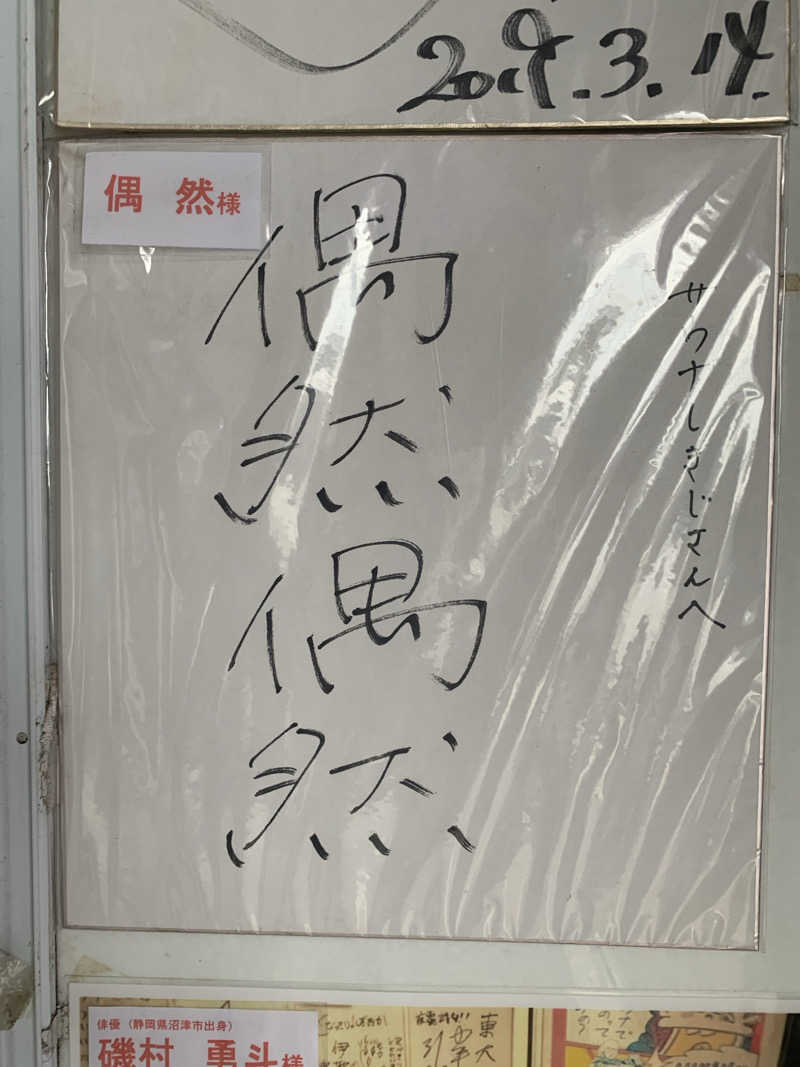 2019.3.14.
偶 然様
サウナしきじさんへ
偶然偶然
俳優（静岡県沼津市出身）
磯村 勇斗様
東大